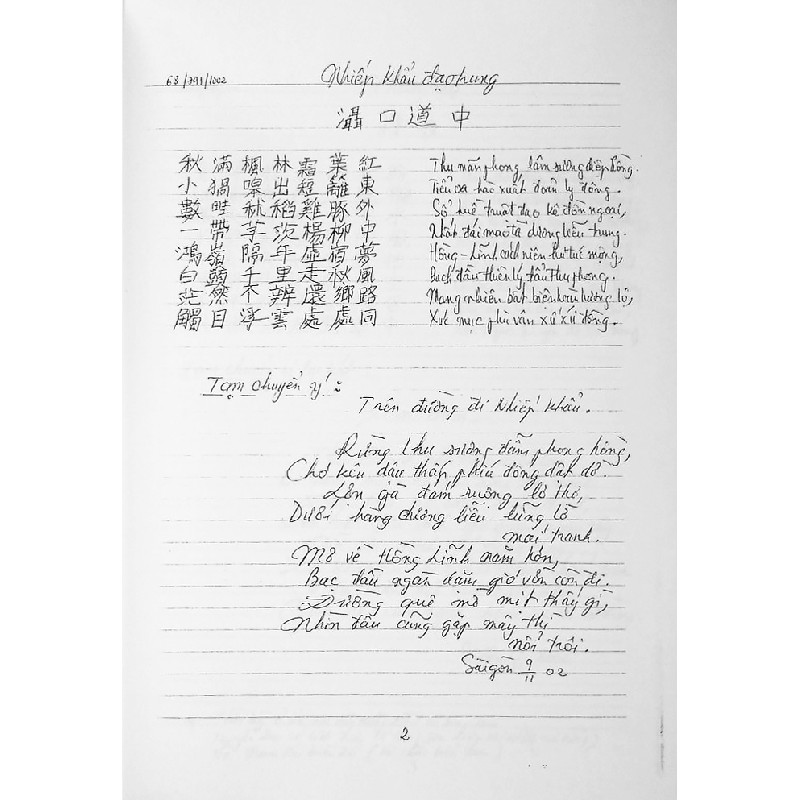 68/791/1002
Nhiếp khẩu đạo trung
灄口道中
秋滿楓林霜葉紅 Thu mãn phong lâm sương diệp hồng.
小猧嘷出短籬東 Tiểu oa hào xuất đoản ly đông.
數畦秫稻雞豚外 Sổ huề truật đạo kê đồn ngoại,
一帶茅茨楊柳中 Nhất đái mao từ dương liễu trung.
鴻嶺隔年虛宿夢 Hồng-lĩnh cách niên hư túc mộng,
白頭千里走秋風 Bạch đầu thiên lý tẩu thu phong.
茫然不辨還鄉路 Mang nhiên bất biện hoàn hương lộ,
觸目浮雲處處同 Xúc mục phù vân xứ xứ đồng.
Tạm chuyển ý:
Trên đường đi Nhiếp khẩu.
Rừng thu sương đẫm phong hồng,
Chó kêu dậu thấp phía đông
Lợn gà đám ruộng lô thô,
Dưới hàng dương liễu lửng lơ
mái tranh.
Mơ về Hồng lĩnh năm tròn,
Bạc đầu ngàn dặm gió vẫn còn đi.
Đường quê mờ mịt thấy gì,
Nhìn đâu cũng gặp mây thì
nổi trôi.
Sàigòn 9/11 02
2